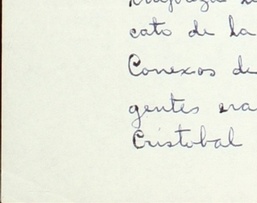 cato de la
Conexos de
gentes era
Cristobal